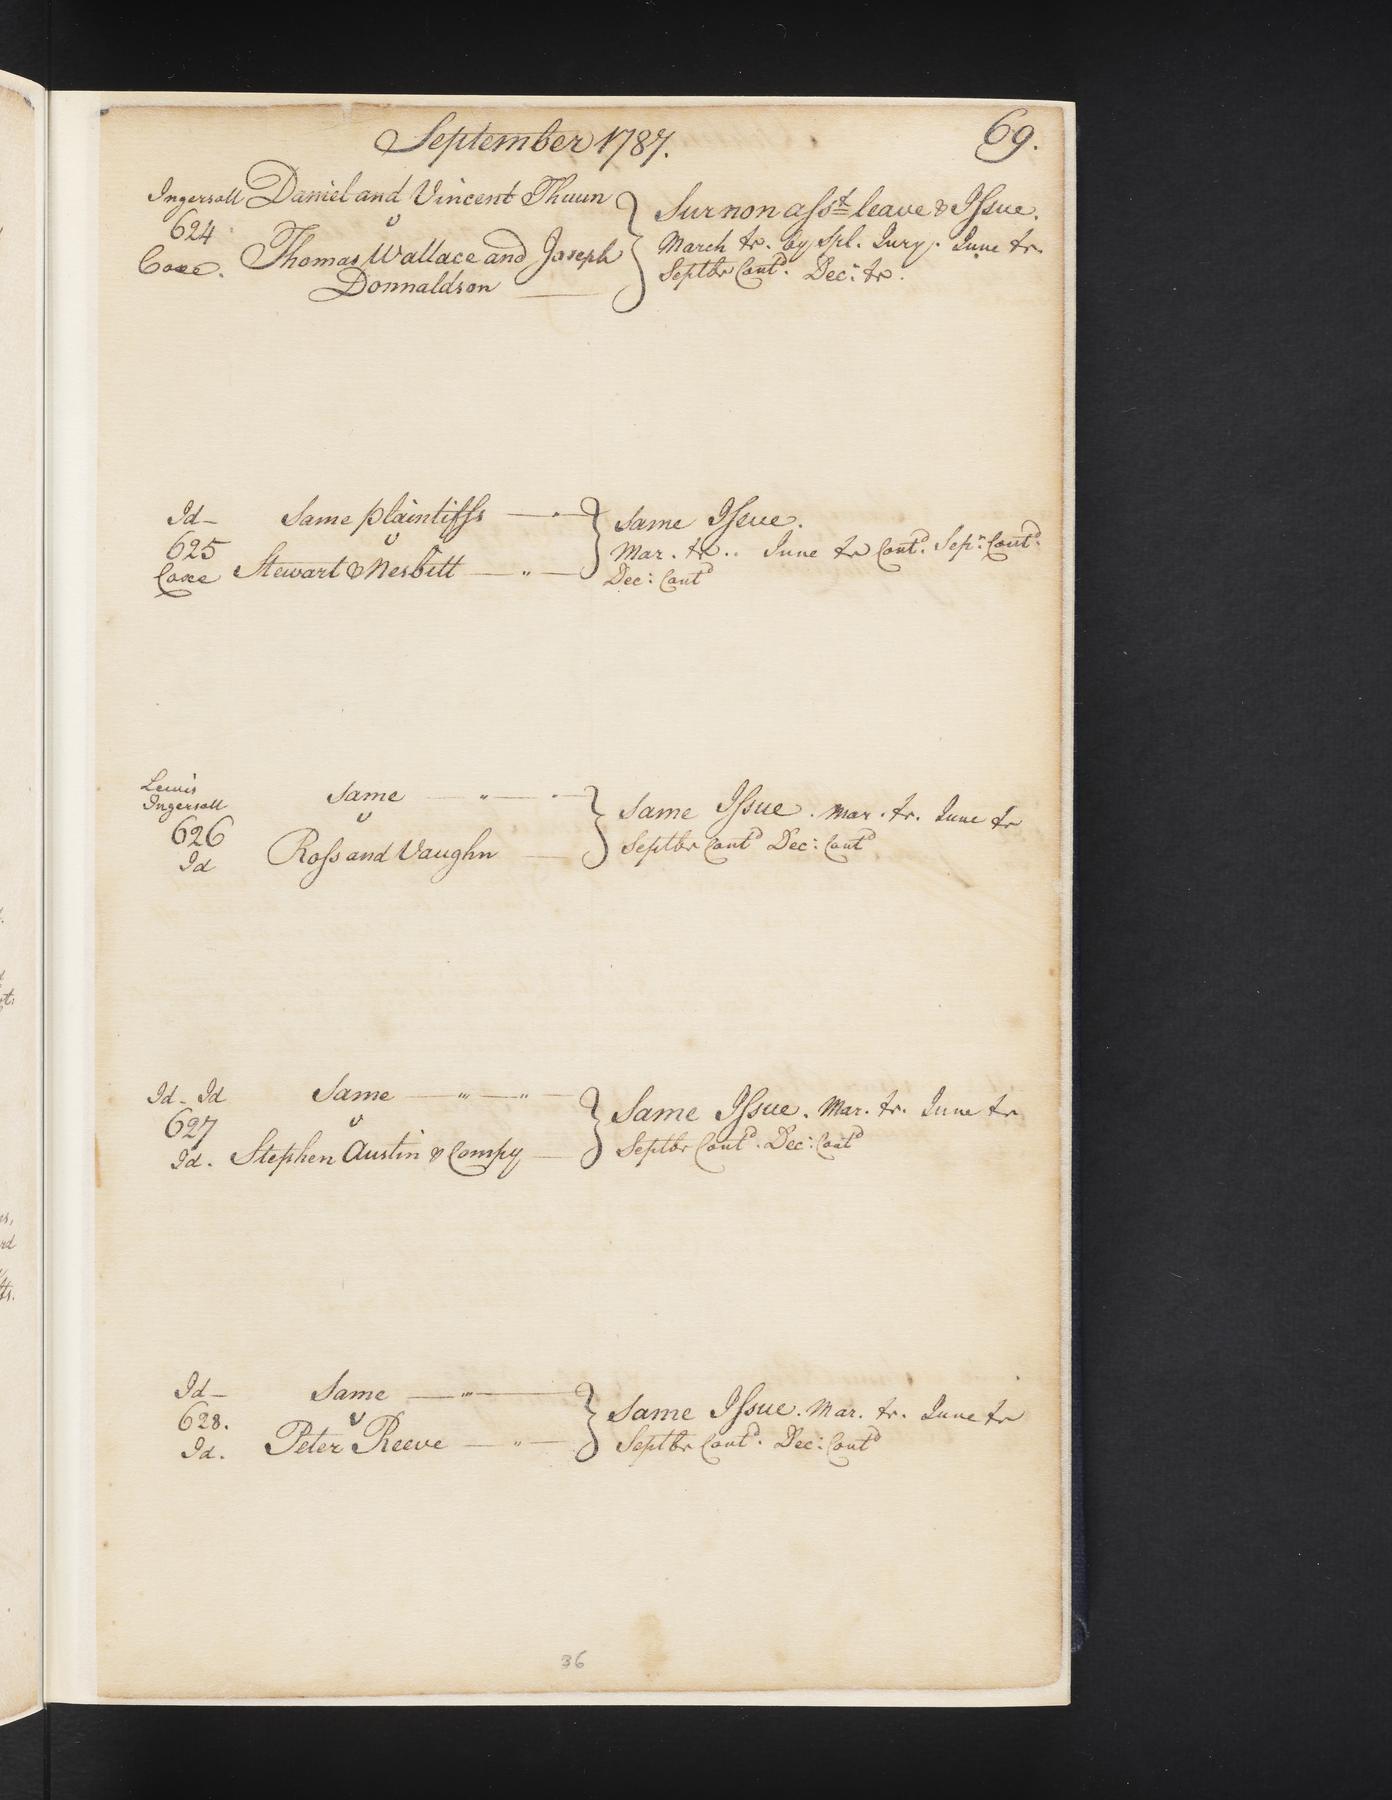 September 1787.
69.
Ingersoll Daniel and Vincent Thuun
624 v
Coxe. Thomas Wallace and Joseph
Donnaldson
Sur non asst leave & Issue.
March tr. by Spl. Jury. June tr.
Septbr Contd. Decr: tr.
Id Same plaintiffs
625 v
Coxe Stewart & Nesbitt
Same Issue.
Mar. tr.. June tr Contd. Sepr: Contd.
Dec: Contd
Lewis
Ingersoll Same
626 v
Id Ross and Vaughn
Same Issue. Mar. tr. June tr
Septbr Contd Dec: Contd
Id - Id Same
627 v
Id. Stephen Austin & Compy
Same Issue. Mar. tr. June tr
Septbr Contd. Dec: Contd
Id Same
628. v
Id. Peter Reeve
Same Issue. Mar. tr. June tr
Septbr Contd. Dec: Contd
36